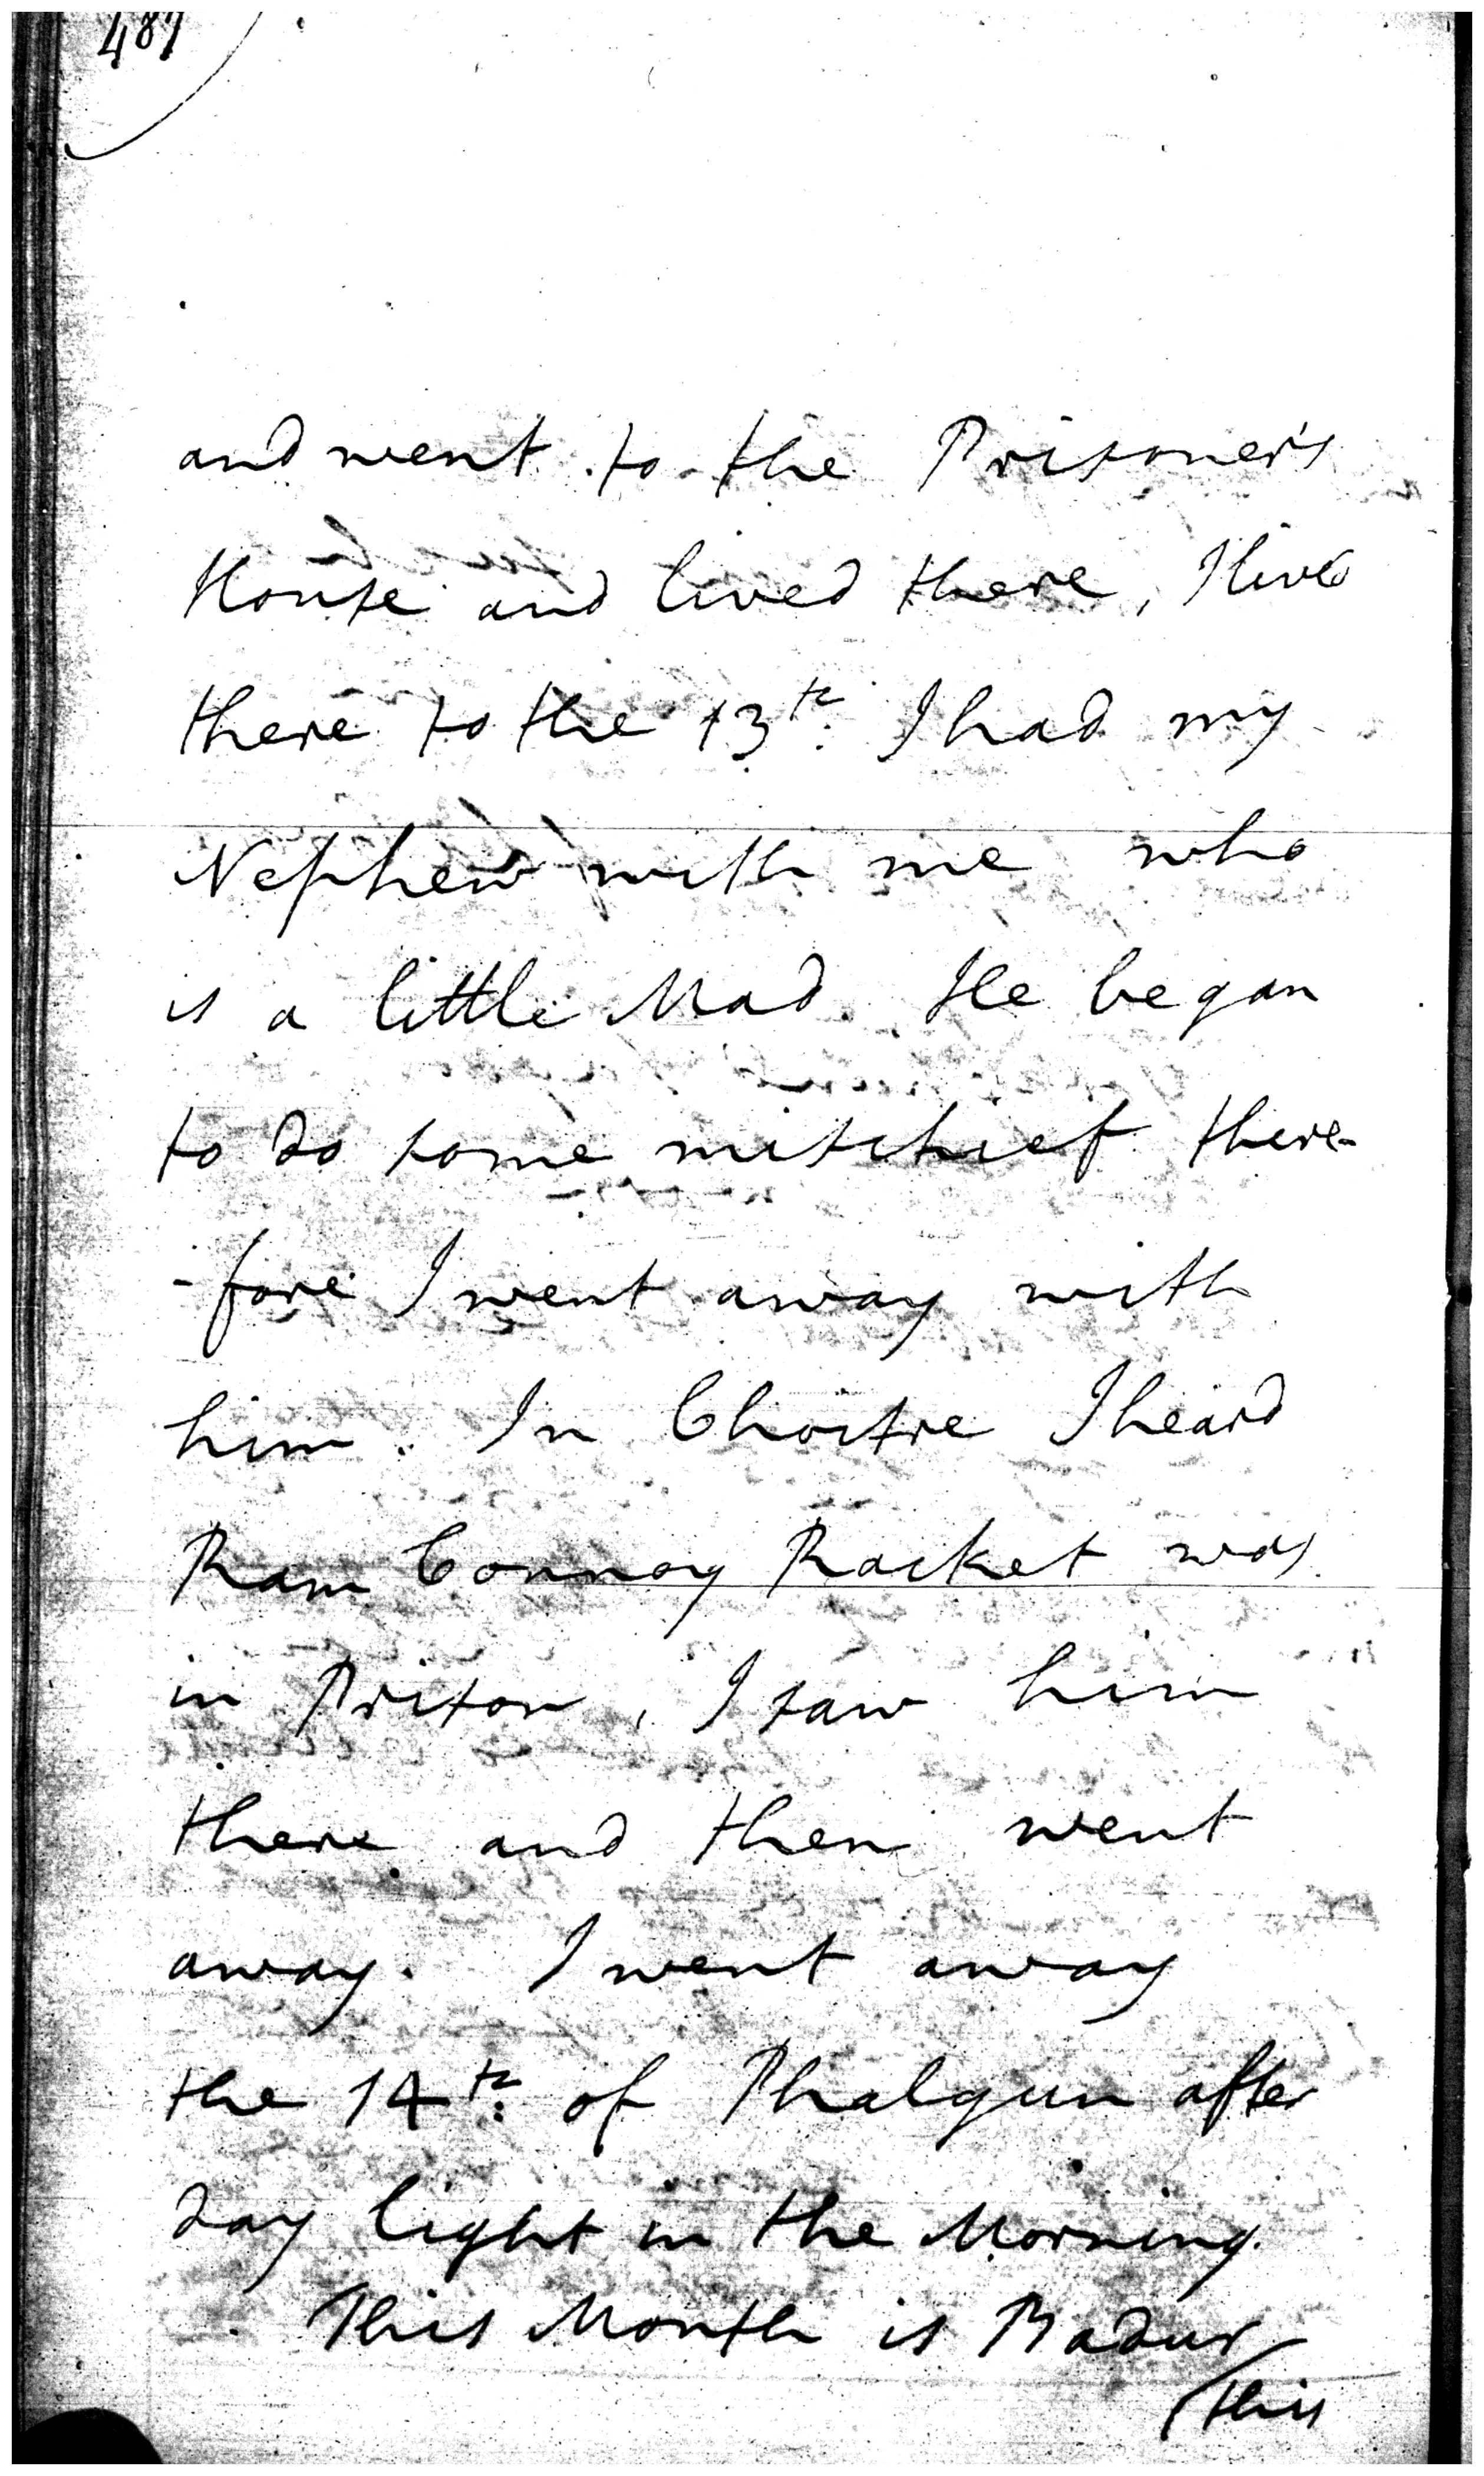 487
and went to the Prisoner's
House and lived there, I live
there to the 13th. I had my
Nephew with me who
is a little Mad. He began
to do some mischief there-
-fore I went away with
him. In Choitre I heard
Ram Connoy Racket was
in Prison, I saw him
there and then went
away. I went away
the 14th. of Phalgun after
day light in the Morning.
This Month is Badur
this